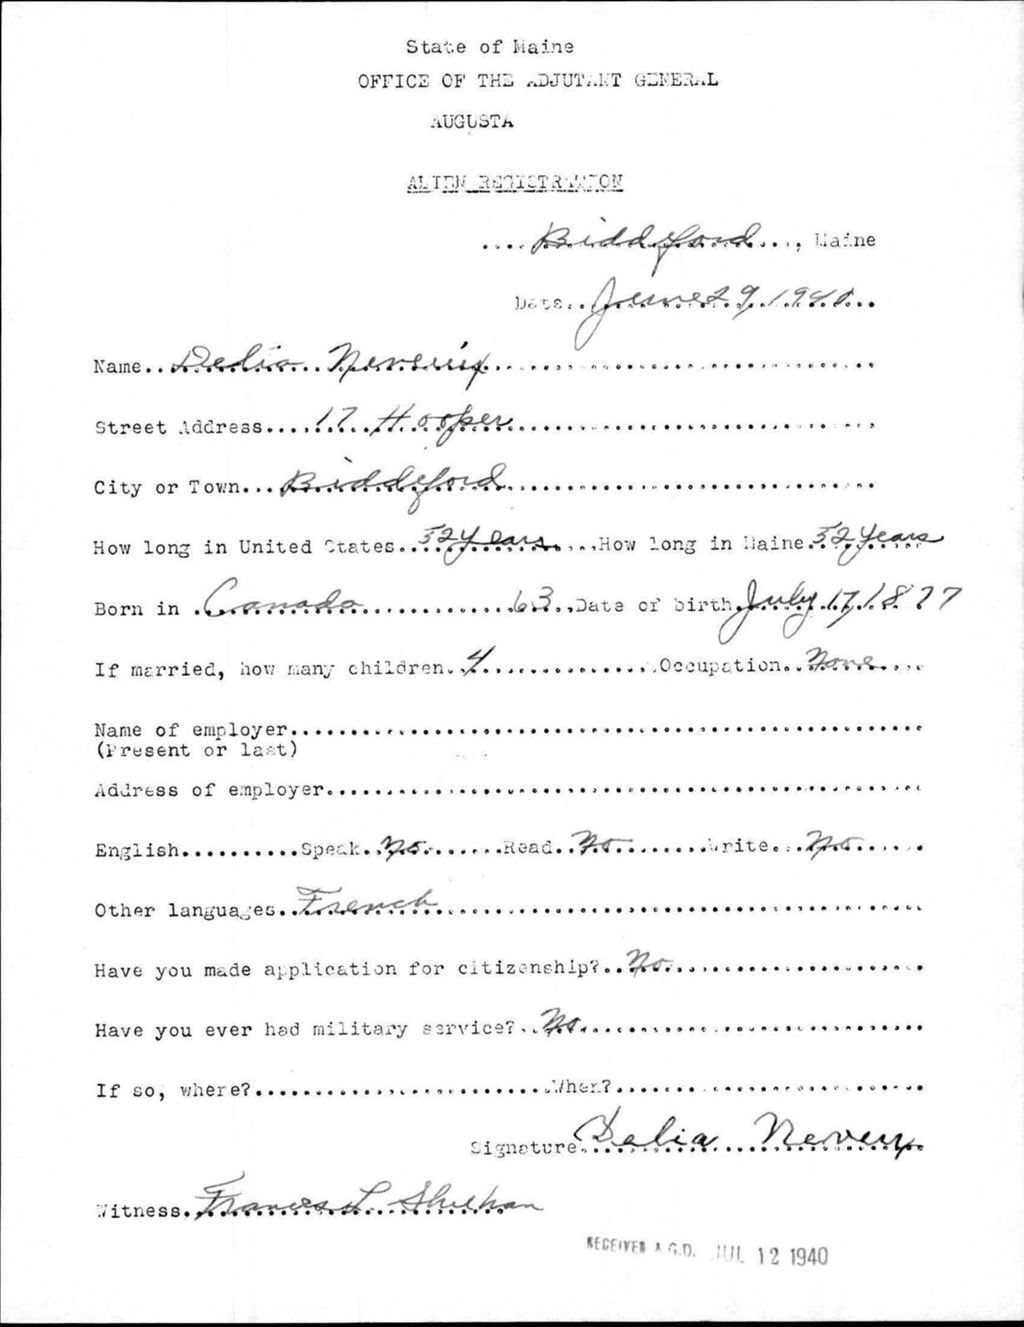 State of Maine
OFFICE OF THE ADJUTANT GENERAL
AUGUSTA
ALIEN REGISTRATION
....Biddeford..., Maine
Date..June 29, 1940..
Name..Delia Neveux...
Street Address....17 Hooper...
City or Town...Biddeford...
How long in United States..52 years...How long in Maine..52 years
Born in .Canada...63..Date of birth.July 17, 1877
If married, how many children..4...Occupation..None...
Name of employer...
(Present or last)
Address of employer...
English..........Speak..No.......Read..No........Write...No.....
Other languages..French...
Have you made application for citizenship?..No...
Have you ever had military service?..No...
If so, where?...When?...
Signature Delia
Witness.Frances L. Sheehan
RECEIVED A.G.O. JUL 12 1940